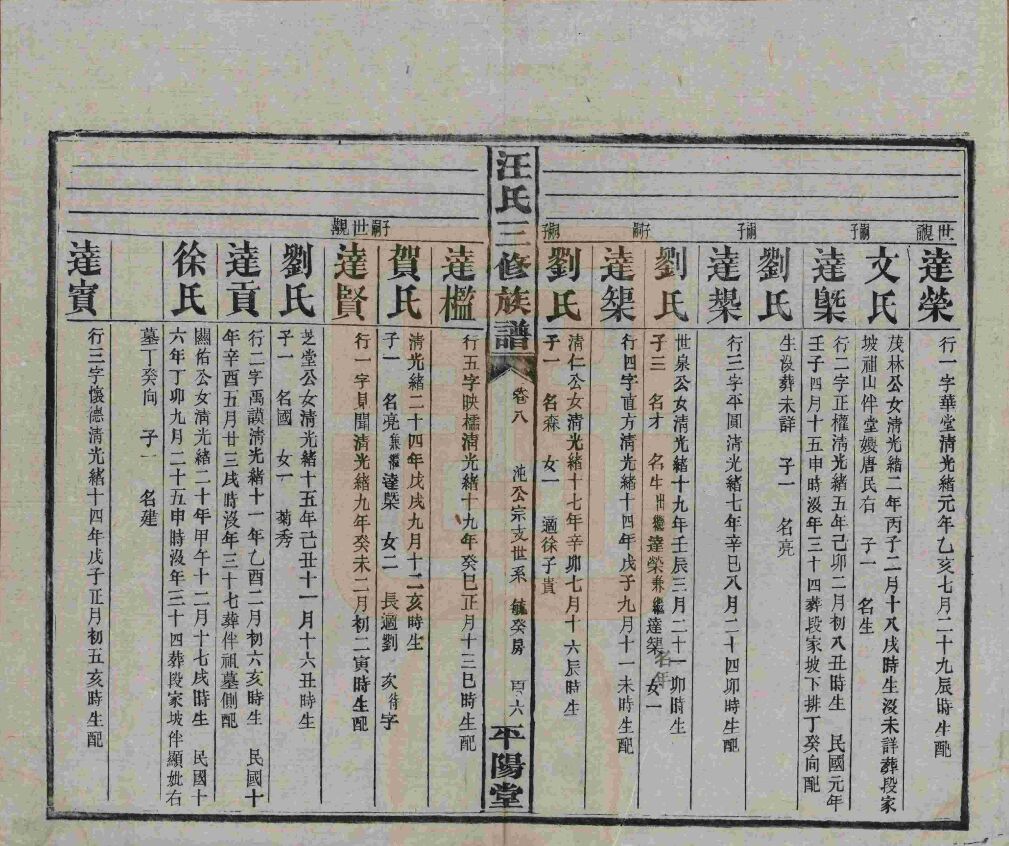 世覲
達榮
行一字華堂清光緒元年乙亥七月二十九辰時生配
文氏
茂林公女清光緒二年丙子二月十八戌時生沒未詳葬段家
坡祖山伴堂嫂唐民右 子一 名生
嗣子
達槩
行二字正權清光緒五年己卯二月初八丑時生 民國元年
壬子四月十五申時沒年三十四葬段家坡下排丁癸向配
劉氏
生沒葬未詳 子一 名亮
嗣子
達槼
行三字平圓清光緒七年辛巳八月二十四卯時生配
劉氏
世泉公女清光緒十九年壬辰三月二十一卯時生
子三 名才 名生出繼達榮兼繼達榘 名年 女一
嗣子
達榘
行四字直方清光緒十四年戊子九月十一未時生配
嗣子
劉氏
清仁公女清光緒十七年辛卯七月十六辰時生
子一 名森 女一 適徐子貴
汪氏三修族譜 卷八 沌公宗支世系 毓癸房 六 平陽堂
達檻
行五字映檽清光緒十九年癸巳正月十三巳時生配
賀氏
清光緒二十四年戊戌九月十二亥時生
子一 名亮兼繼達槩 女二 長適劉 次待字
世覲嗣子
達賢
行一字見聞清光緒九年癸未二月初二寅時生配
劉氏
芝堂公女清光緒十五年己丑十一月十六丑時生
子一 名國 女一 菊秀
達貢
行二字禹謨清光緒十一年乙酉二月初六亥時生 民國十
年辛酉五月廿三戌時沒年三十七葬伴祖墓側配
徐氏
關佑公女清光緒二十年甲午十二月十七戌時生 民國十
六年丁卯九月二十五申時沒年三十四葬段家坡伴顯妣右
墓丁癸向 子一 名建
達賓
行三字懷德清光緒十四年戊子正月初五亥時生配